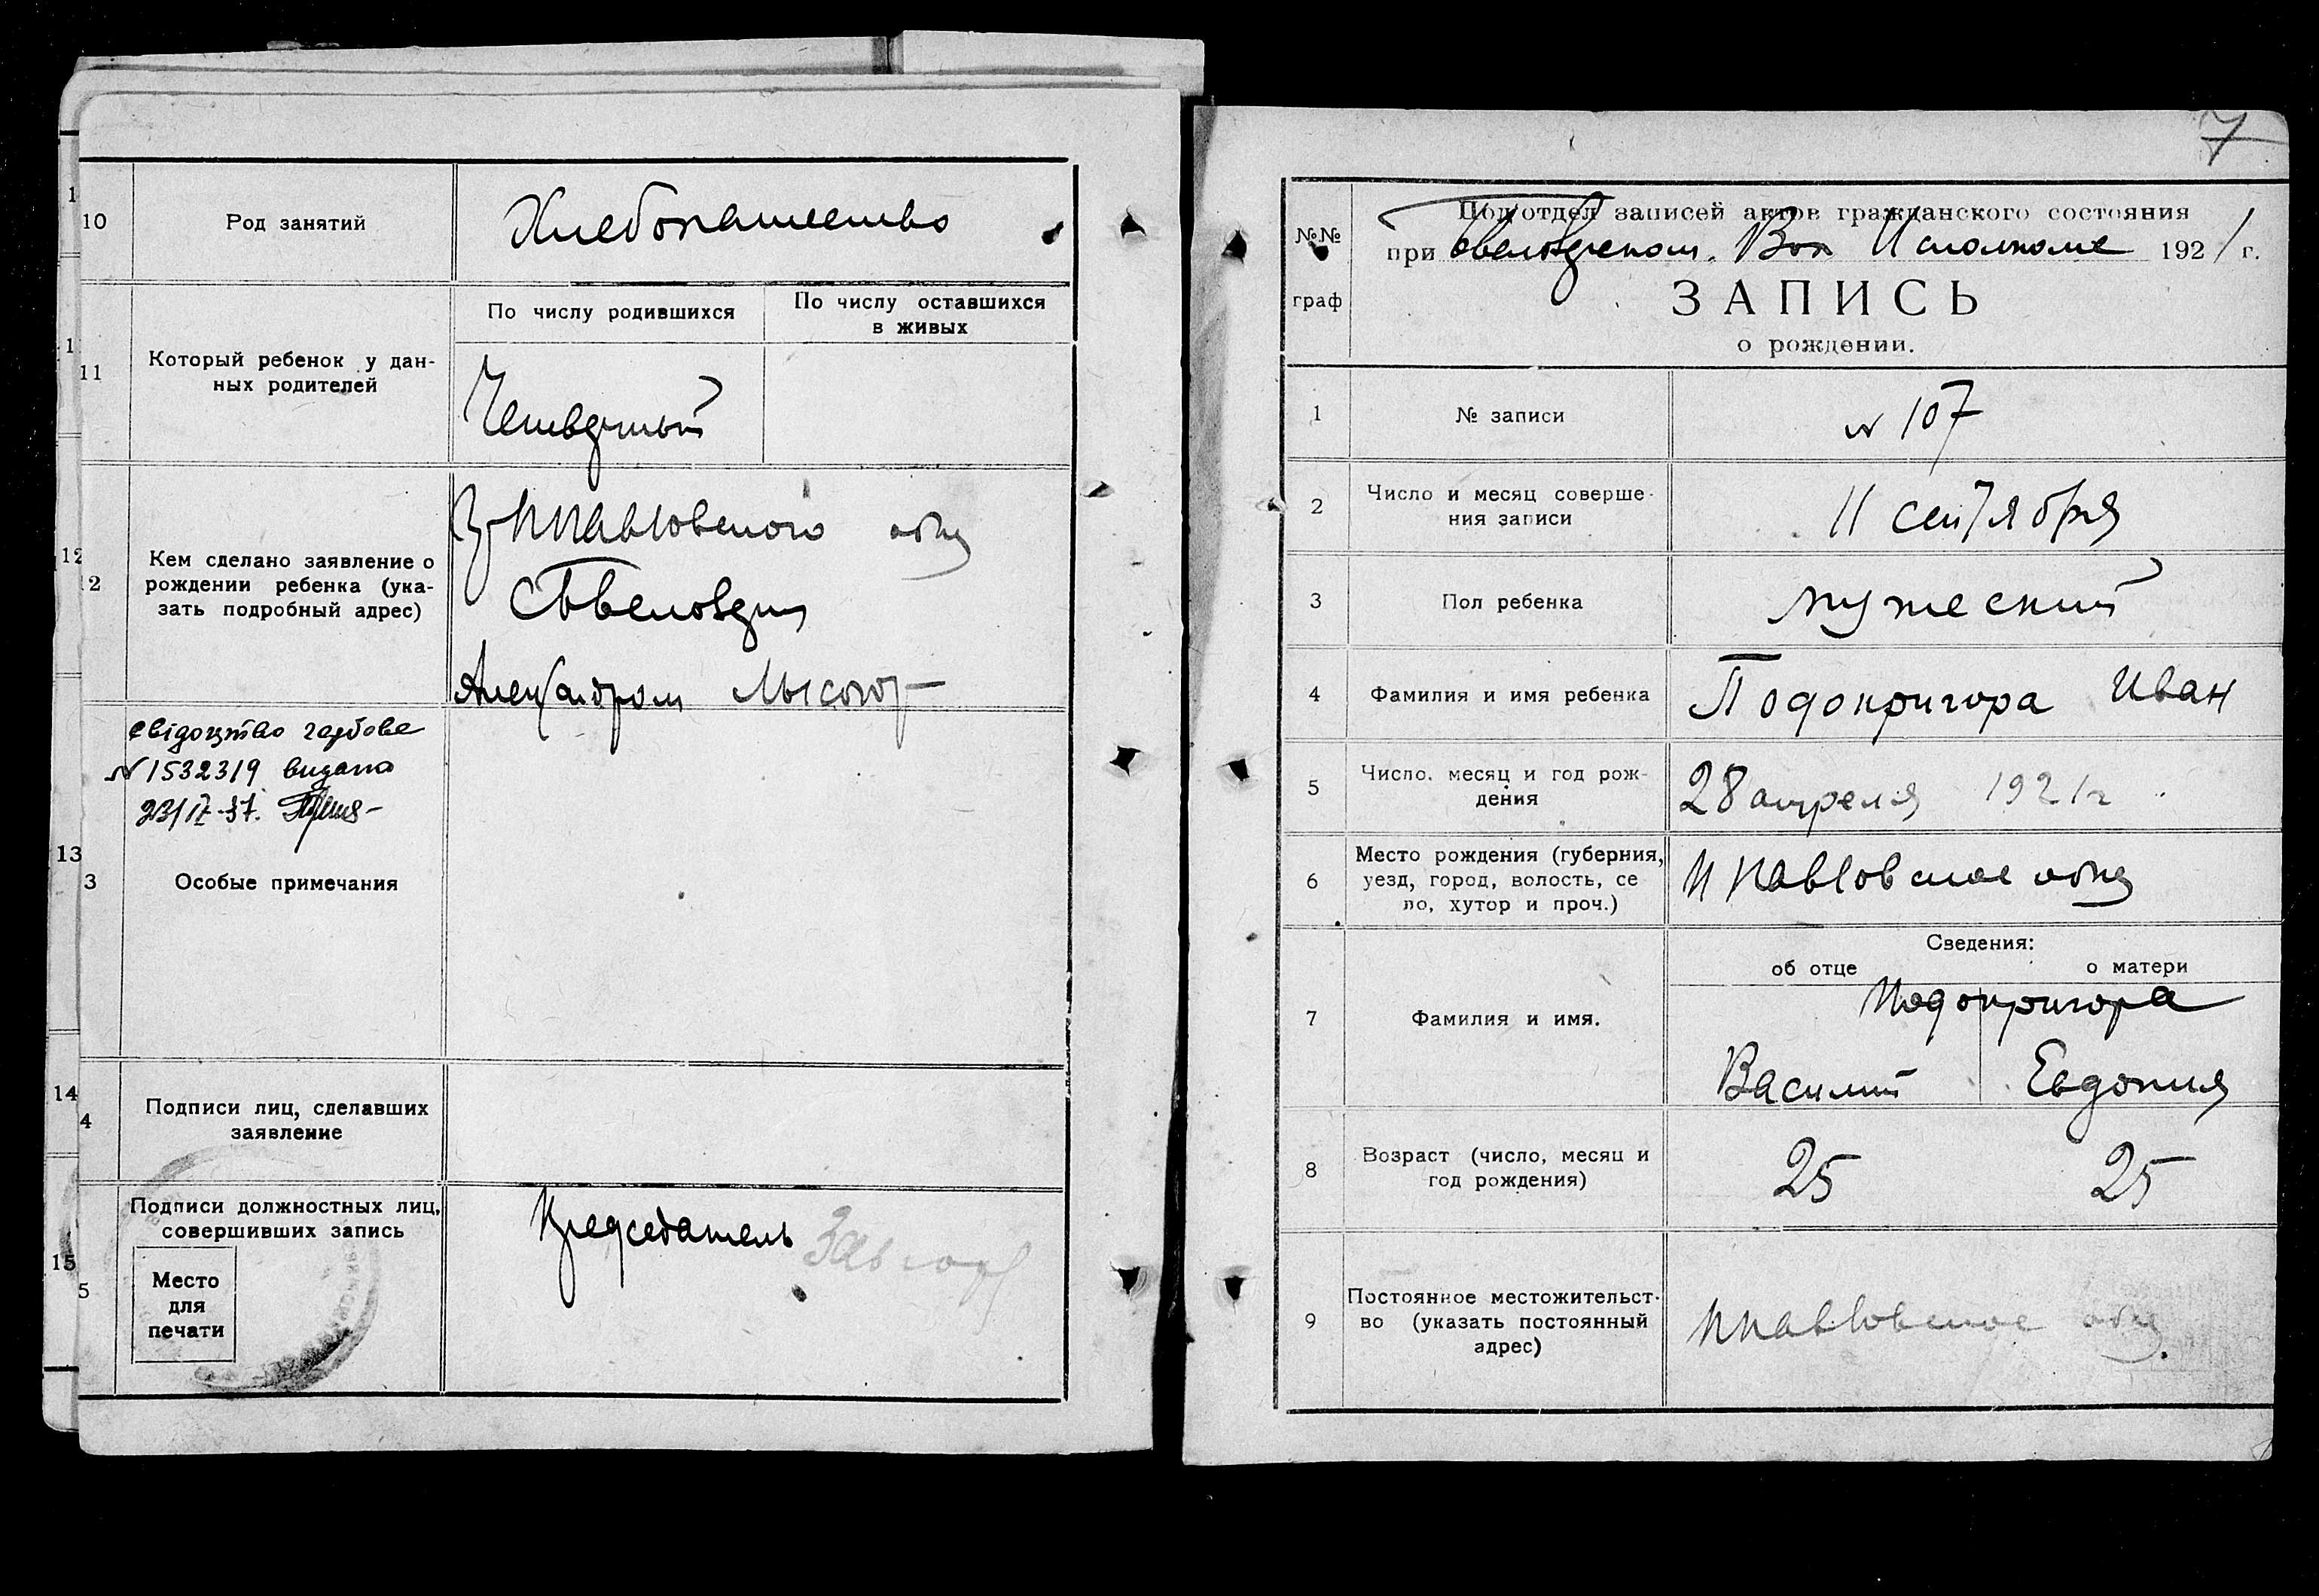 10
Род занятий
Хлебопашество
11
Который ребенок у дан-
ных родителей
По числу родившихся
По числу оставшихся
в живых
Четвертый
12
Кем сделано заявление о
рождении ребенка (ука-
зать подробный адрес)
Павловского
Александром Лысогор
свідоцтво гербове
№ 1532319 видано
23/IV-37.
13
Особые примечания
14
Подписи лиц, сделавших
заявление
15
Подписи должностных лиц,
совершивших запись
Место
для
печати
Председатель
7
№№
граф
Подотдел записей актов гражданского состояния
при Вол Исполкоме 1921 г.
ЗАПИСЬ
о рождении.
1
№ записи
№ 107
2
Число и месяц соверше-
ния записи
11 сентября
3
Пол ребенка
мужеский
4
Фамилия и имя ребенка
Подопригора Иван
5
Число, месяц и год рож-
дения
28 апреля 1921 г
6
Место рождения (губерния,
уезд, город, волость, се
ло, хутор и проч.)
Павловское
Сведения:
об отце
о матери
7
Фамилия и имя.
Подопригора
Василий
Евдокия
8
Возраст (число, месяц и
год рождения)
25
25
9
Постоянное местожительст-
во (указать постоянный
адрес)
Павловское